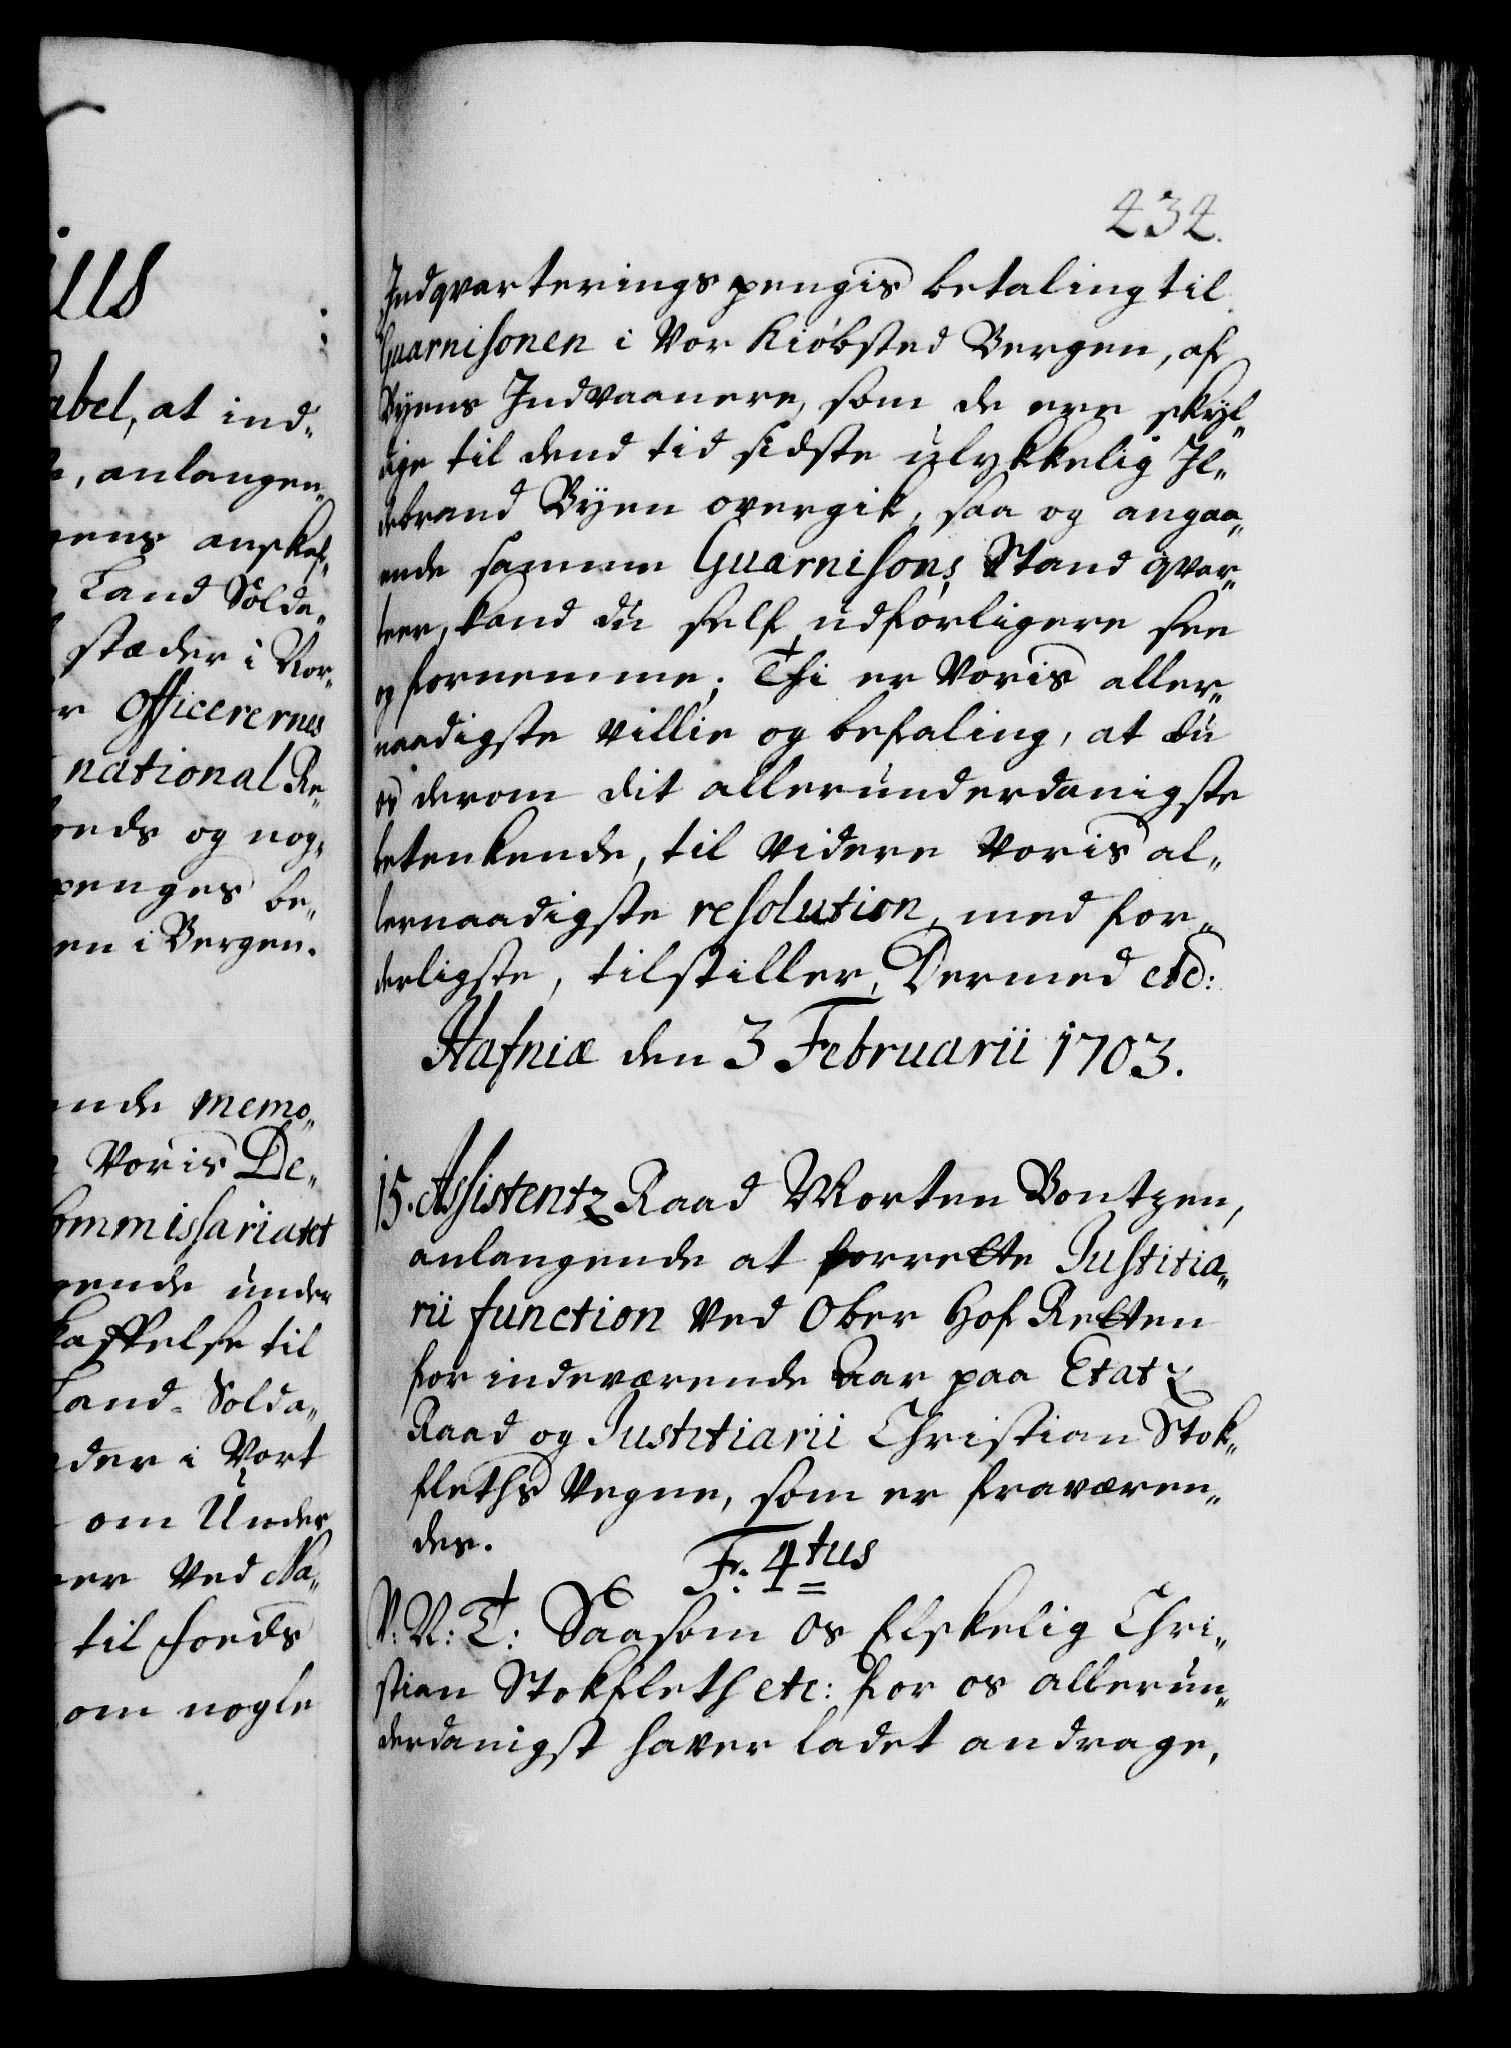 ills
:
abel, at ind„
, anlangen„
ens anskaf„
Land Solda„
stæder i Nor„
r Officerernes
national Re„
ords og nog„
penges be„
en i Bergen.
ende Memo„
Voris De„
Commissariatet
gende under
kaffelse til
Land- Solda„
der i Vort
om Under
er Ved Na„
til Fords
om nogle
232.
Indqvarterings pengis betaling til
Guarnisonen i Vor Kiøbsted Bergen, af
Byens Indvaanere, som de ere skyl„
dige til dend tid sidste ulykkelig Il„
debrand Byen overgik, saa og angaa„
ende samme Guarnisons Stand qvar„
teer, kand du self udførligere see
og fornemme; Thi er Voris aller„
naadigste Villie og befaling, at du
os derom dit allerunderdanigste
betenkende, til Videre Voris al„
lernaadigste resolution, med for„
derligste, tilstiller, Dermed etc:
Hafniæ den 3 Februarii 1703.
15. Assistentz Raad Morten Bontzen,
anlangende at forrette Justitia„
rii function Ved Ober Hof Retten
for indeværende Aar paa Etatz
Raad og Justitiarii Christian Stok„
fleths Vegne, som er fraværen„
des.
F: 4tus
V: N: T: Saasom os Elskelig Chri„
stian Stokfleth etc: for os allerun„
derdanigst haver ladet andrage,